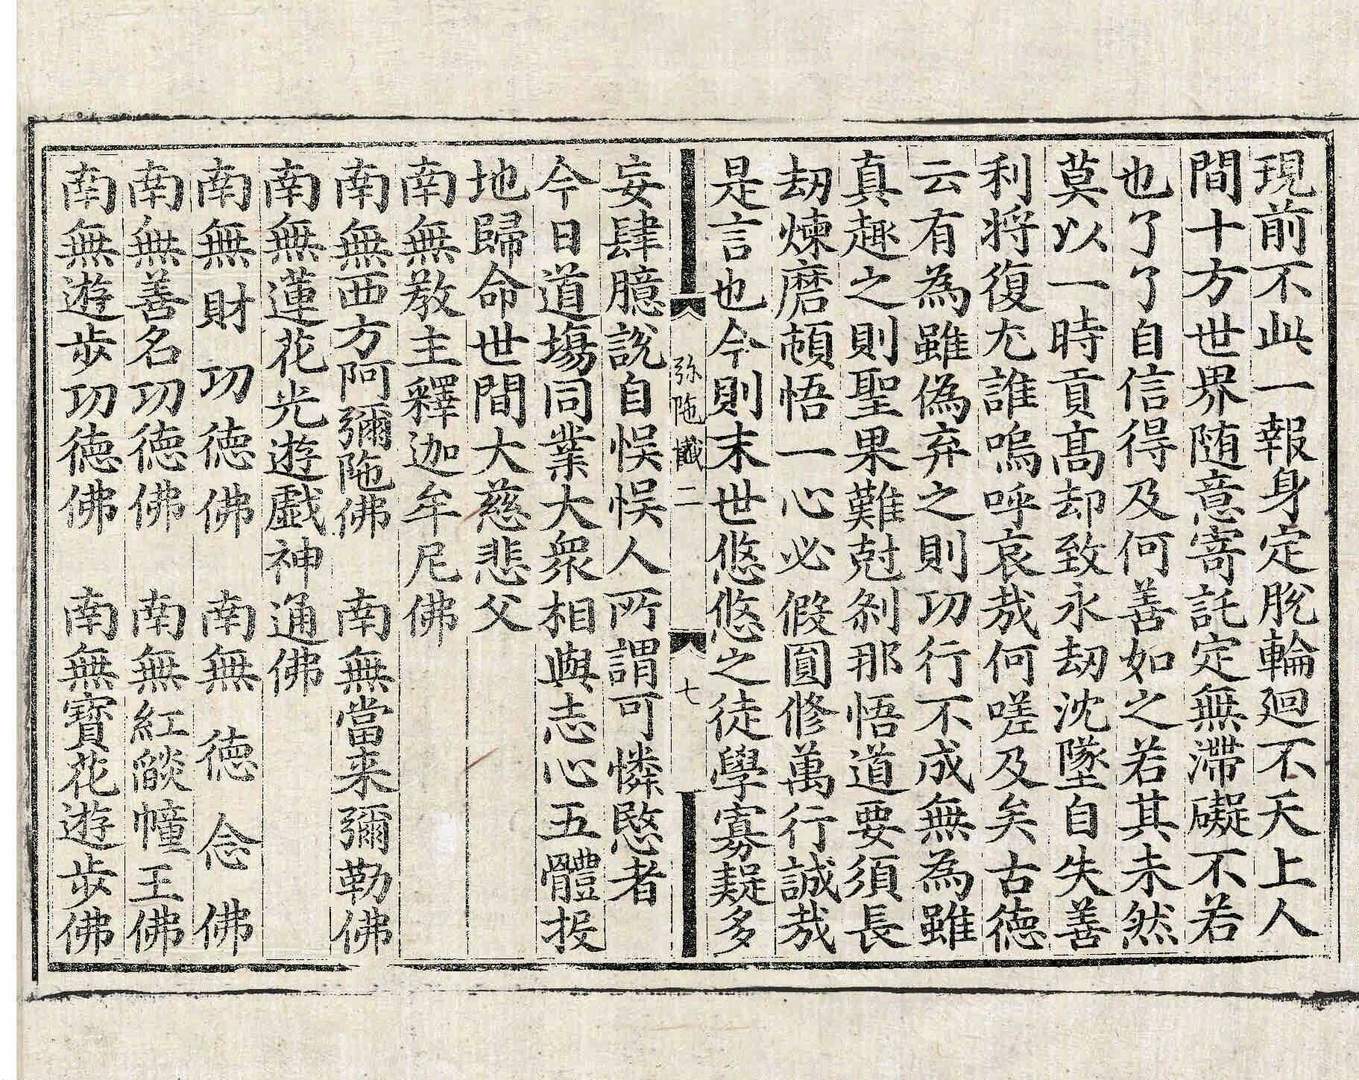 現前不此一報身定脫輪廻不天上人
間十方世界随意寄託定無滯礙不若
也了了自信得及何善如之若其未然
莫以一時貢髙却致永劫沈墜自失善
利将復尤誰嗚呼哀㦲何嗟及矣古徳
云有為雖偽弃之則功行不成無為雖
真趣之則聖果難尅剎那悟道要須長
劫煉磨頓悟一心必假圓修萬行誠㦲
是言也今則末世悠悠之徒學寡疑多
弥陁懺二
七
妄肆臆說自悞悞人所謂可憐愍者
今日道場同業大衆相與志心五體投
地歸命世間大慈悲父
南無教主釋迦牟尼佛
南無西方阿彌陁佛　南無當来彌勒佛
南無蓮花光遊戲神通佛
南無財功徳佛　南無德念佛
南無善名功徳佛　南無紅燄幢王佛
南無遊步功徳佛　南無寳花遊步佛